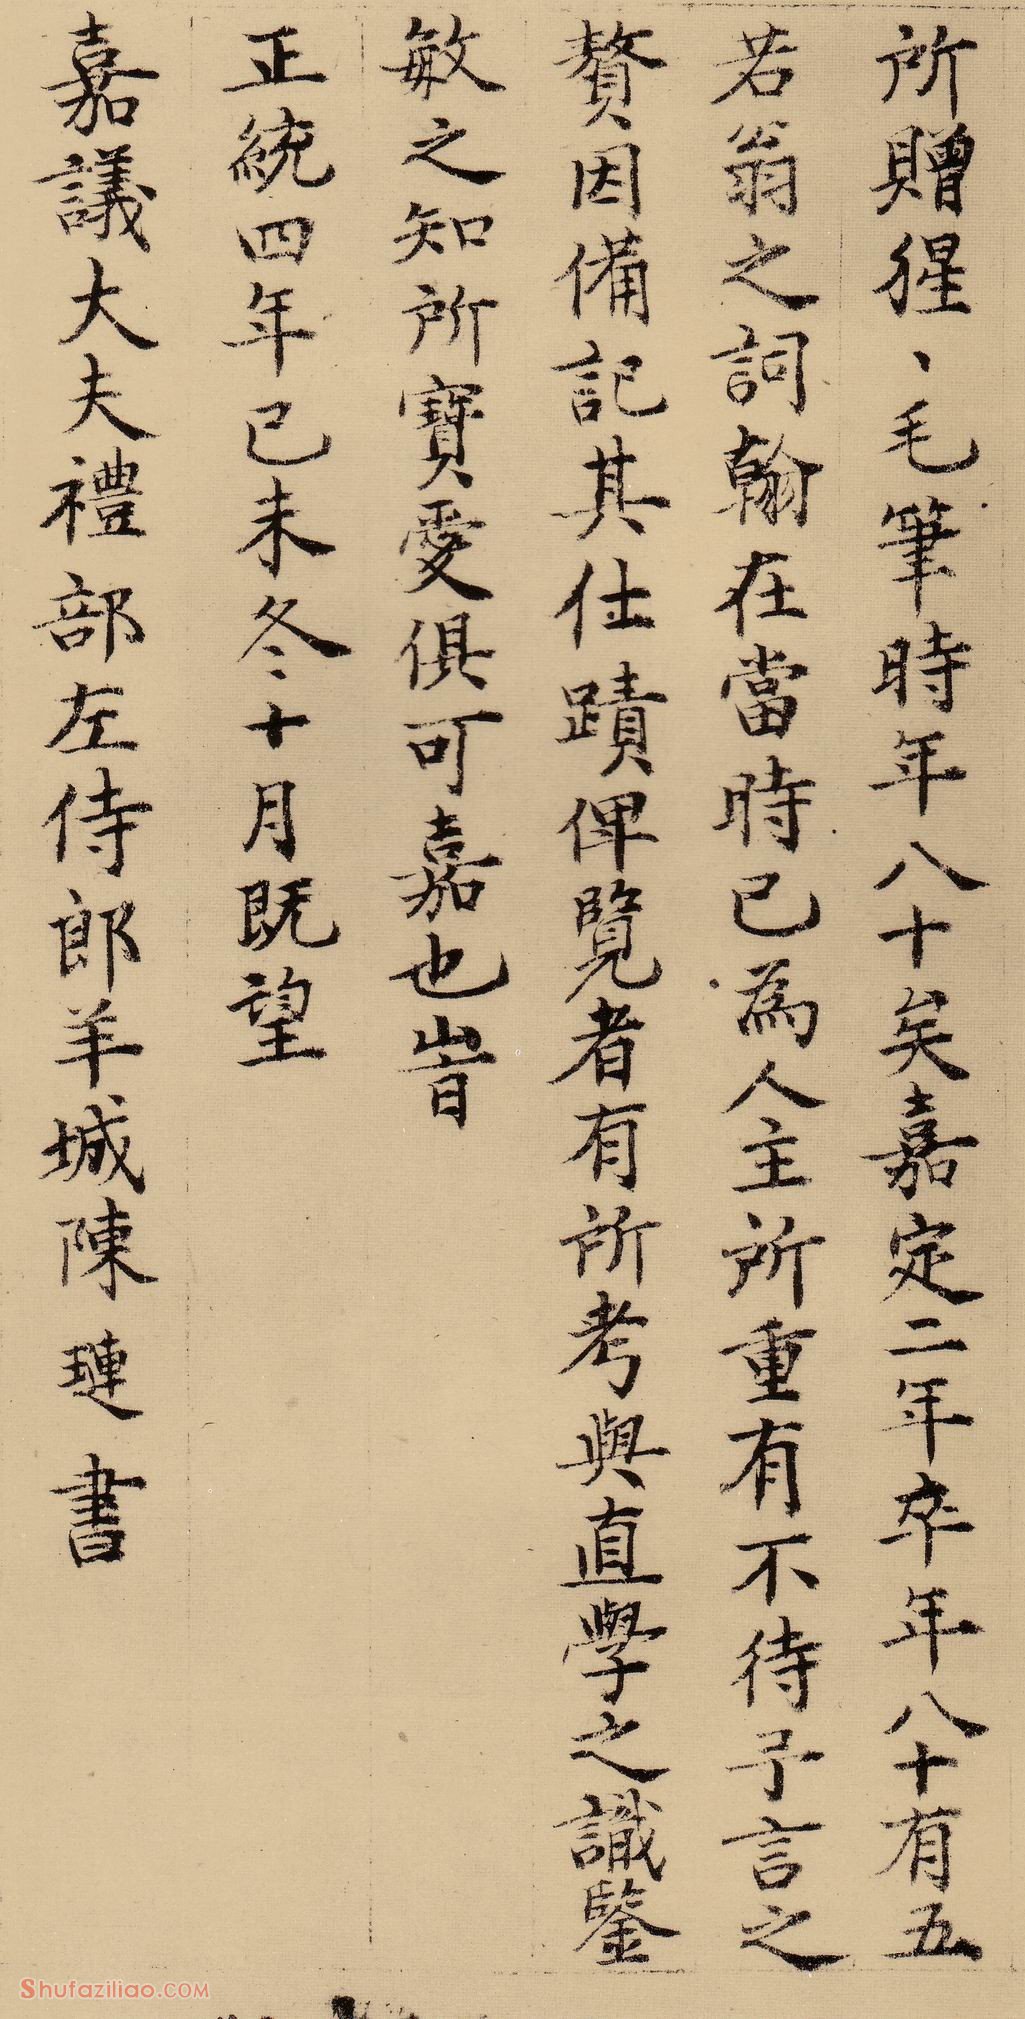 所贈猩、毛筆時年八十矣嘉定二年卒年八十有五
若翁之詞翰在當時已為人主所重有不待予言之
贅因備記其仕蹟俾覽者有所考與直學之識鑒
敏之知所寶愛俱可嘉也旹
正統四年己未冬十月既望
嘉議大夫禮部左侍郎羊城陳璉書
Shufaziliao.COM